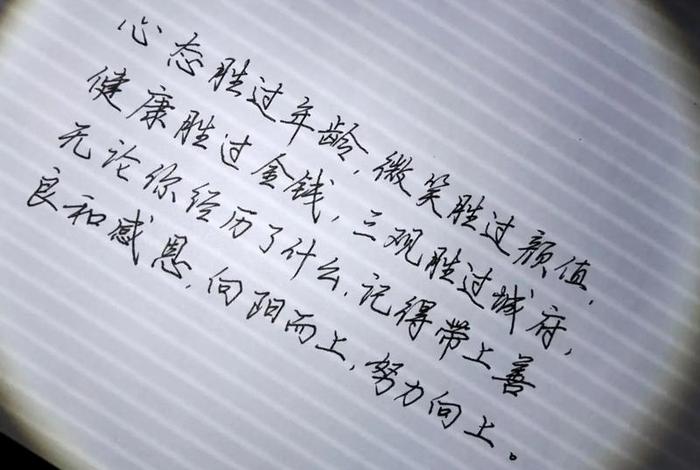 心态胜过年龄,微笑胜过颜值,
健康胜过金钱,三观胜过城府,
无论你经历了什么,记得带上善
良和感恩,向阳而上,努力向上。